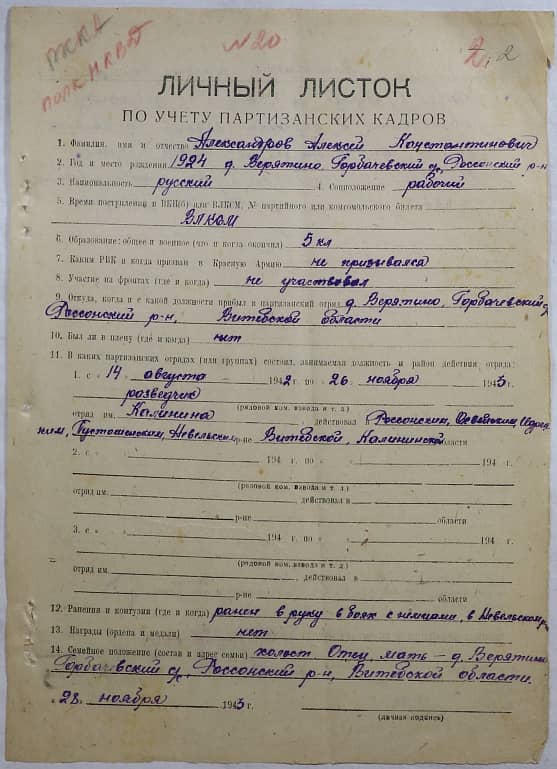 РККА
полк НКВД
№20
2, 2
ЛИЧНЫЙ ЛИСТОК
ПО УЧЕТУ ПАРТИЗАНСКИХ КАДРОВ
1. Фамилия, имя и отчество Александров Алексей Константинович
2. Год и место рождения 1924 д. Верятино, Горбачевский с/с, Россонский р-н
3. Национальность русский 4. Соцположение рабочий
5. Время поступления в ВКП(б) или ВЛКСМ, № партийного или комсомольского билета
ВЛКСМ
6. Образование: общее и военное (что и когда окончил) 5 кл
7. Каким РВК и когда призван в Красную Армию не призывался
8. Участие на фронтах (где и когда) не участвовал
9. Откуда, когда и с какой должности прибыл в партизанский отряд д. Верятино, Горбачевский с/с
Россонский р-н, Витебской области
10. Был ли в плену (где и когда) нет
11. В каких партизанских отрядах (или группах) состоял, занимаемая должность и район действия отряда:
1. с 14 августа 1942 г. по 26 ноября 1943
разведчик
(рядовой ком. взвода и т. д.)
отряд им. Калинина, действовал Россонским, Освейским, Идриц-
ким, Пустошенским, Невельским р-не Витебской, Калининской области
2. с 194 г. по 194 г.
(рядовой ком. взвода и т. д.)
отряд им. действовал в
р-не области
3. с 194 г. по 194 г.
(рядовой ком. взвода и т. д.)
отряд им. действовал в
р-не области
12. Ранения и контузии (где и когда) ранен в руку в боях с немцами, в Невельском р-не
13. Награды (ордена и медали) нет
14. Семейное положение (состав и адрес семьи) холост Отец, мать – д. Верятино
Горбачевский с/с, Россонский р-н, Витебской области.
„28„ ноября 1943 г.
(личная подпись)